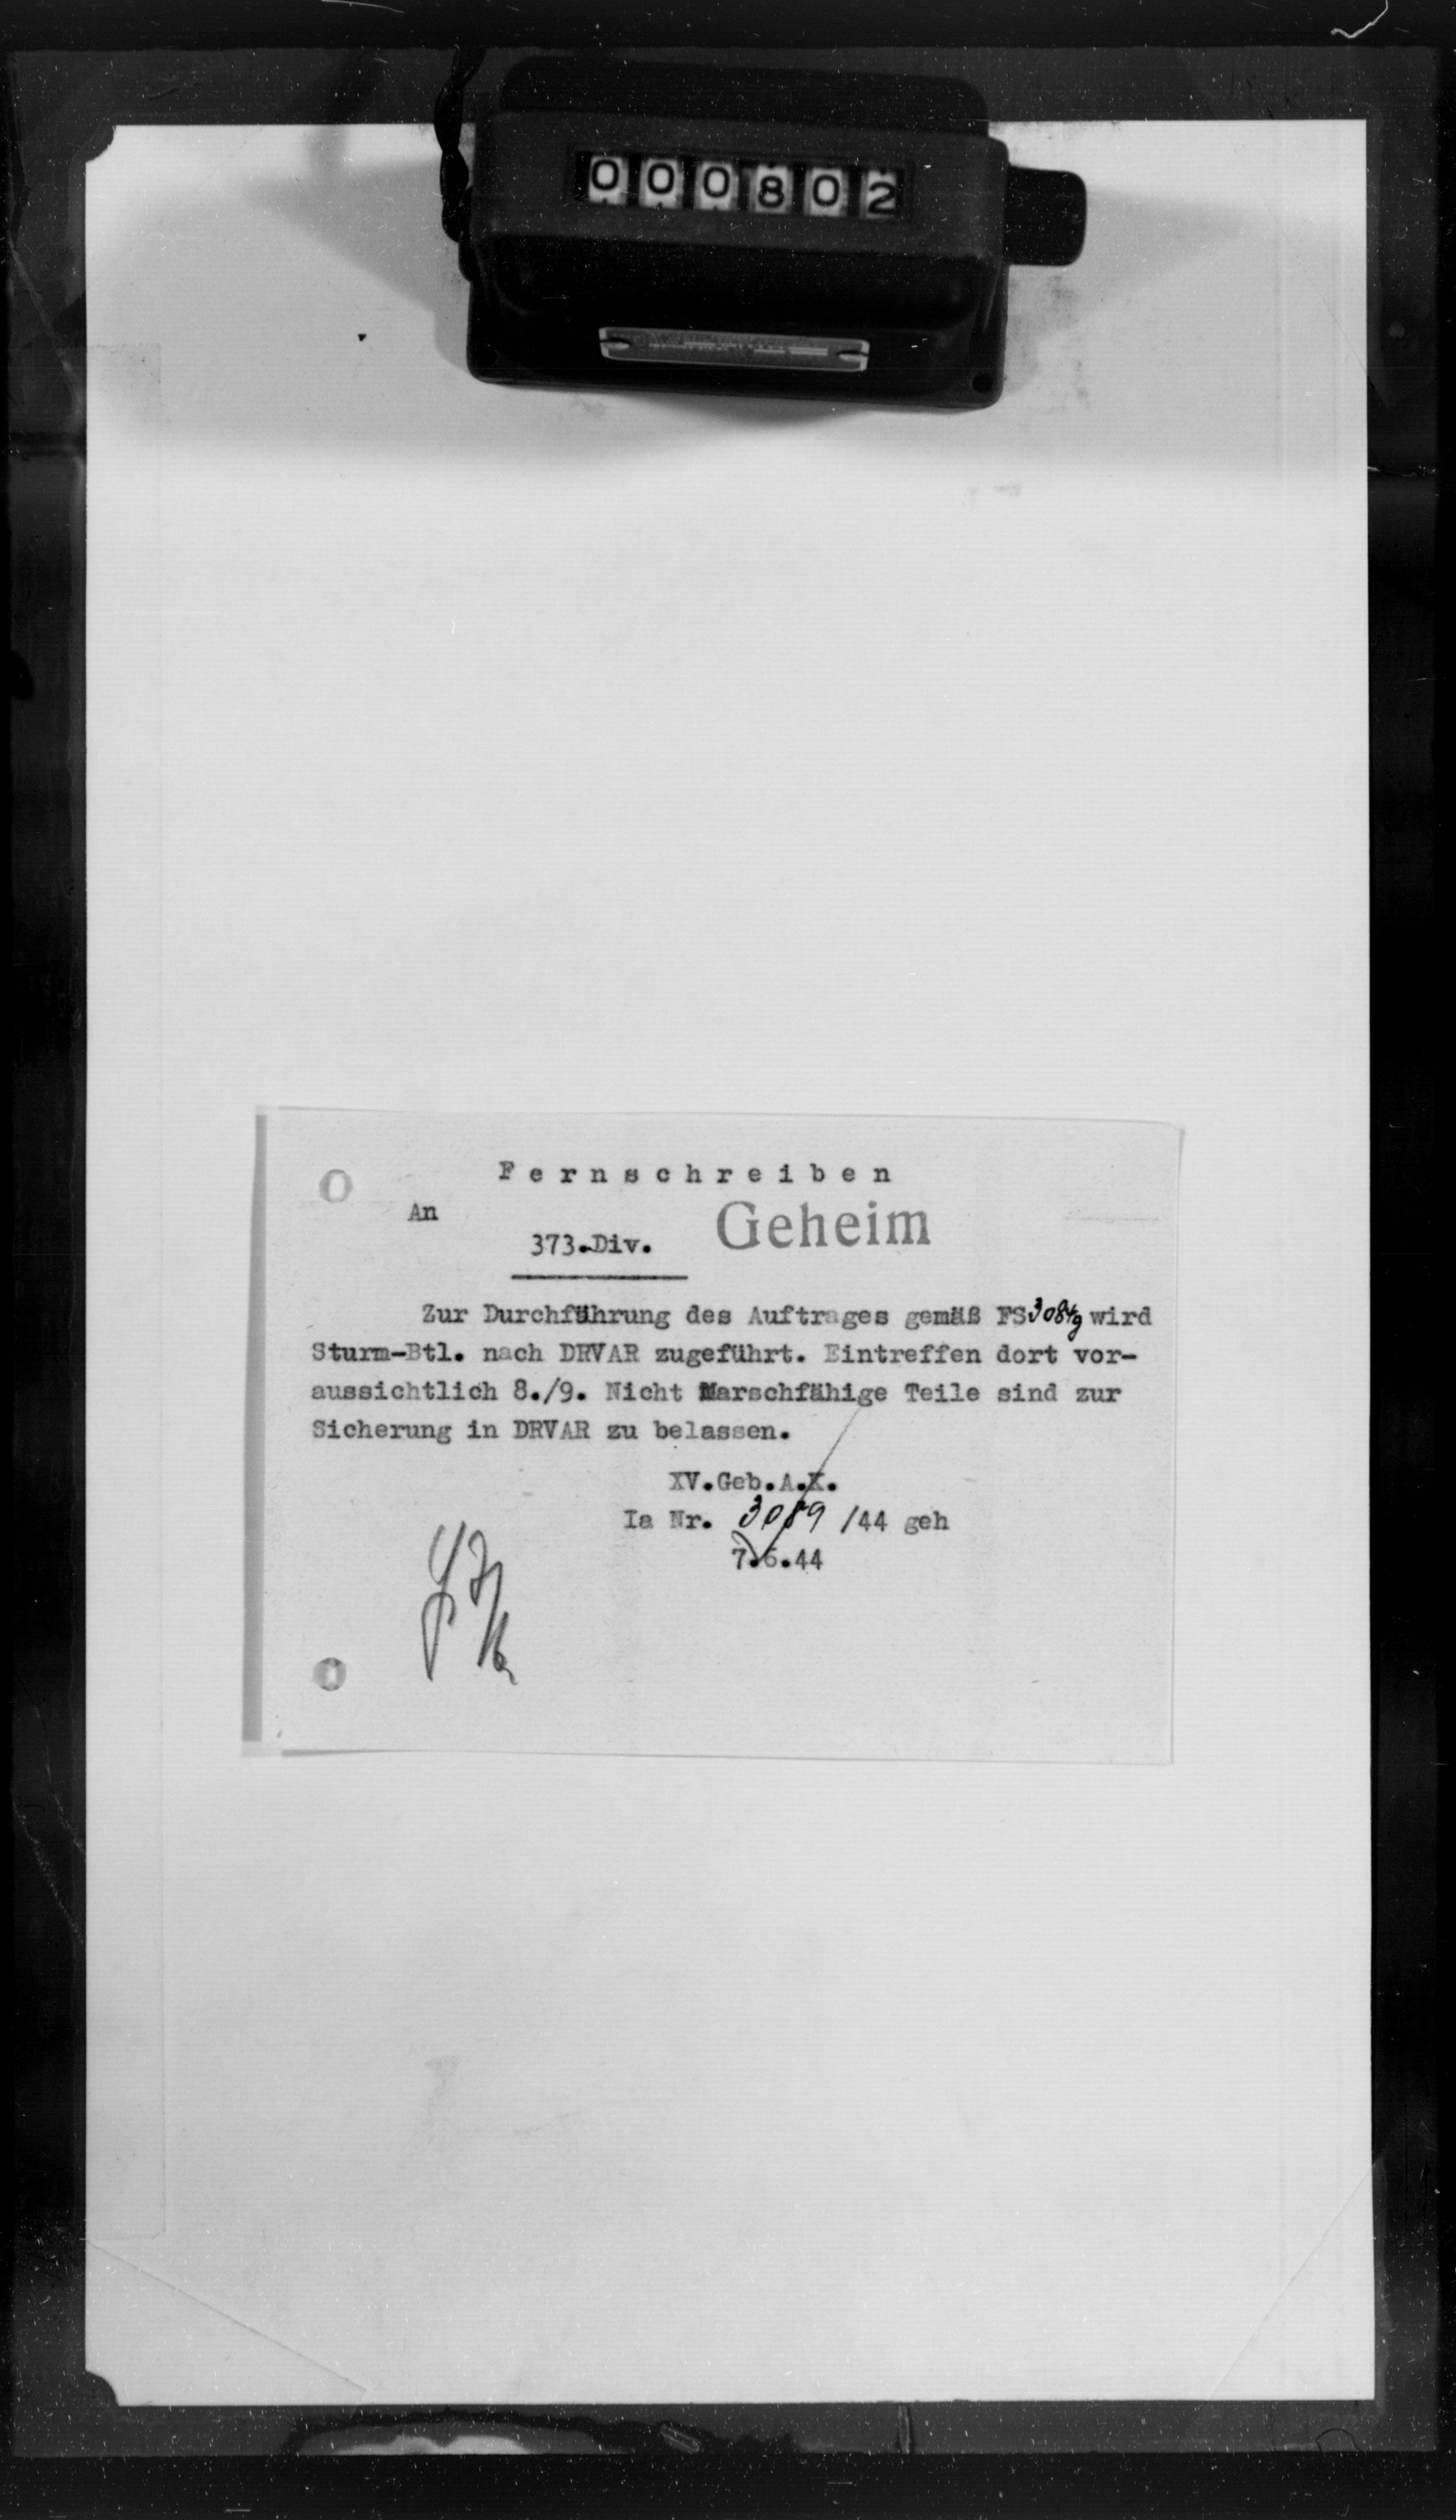 000802
Fernschreiben
An
Geheim
373.Div.
Zur Durchführung des Auftrages gemäß FS 3084/g wird
Sturm-Btl. nach DRVAR zugeführt. Eintreffen dort vor-
aussichtlich 8./9. Nicht Marschfähige Teile sind zur
Sicherung in DRVAR zu belassen.
XV.Geb.A.K.
Ia Nr. 3089 /44 geh
7.6.44